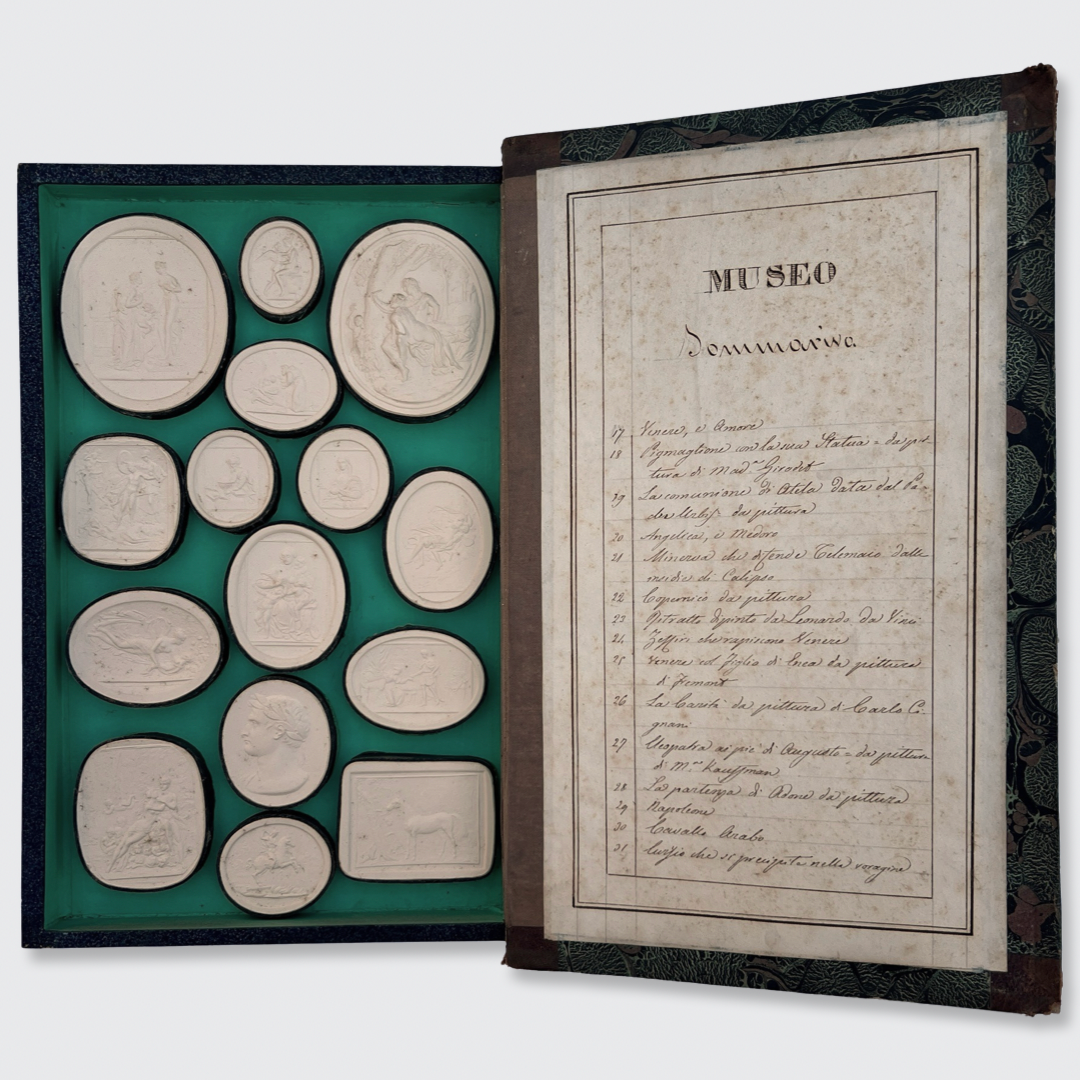 MUSEO
Sommariva
17 Venere, e Amore
18 Pigmaglione con la sua Statua = da pit-
tura di Mad.re Girodet
19 La comunione di Atala data dal Pa-
dre Aubry da pittura
20 Angelica, e Medoro
21 Minerva che difende Telemaco dalle
insidie di Calipso
22 Copernico da pittura
23 Ritratto dipinto da Leonardo da Vinci
24 Zeffiri che rapiscono Venere
25 Venere ed figlio di Enea da pittura
di
26 La Carità da pittura di Carlo Ci-
gnani
27 Cleopatra ai pie' di Augusto = da pittura
di M.me Kauffman
28 La partenza di Adone da pittura
29 Napoleone
30 Cavallo Arabo
31 Curzio che si precipita nella voragine